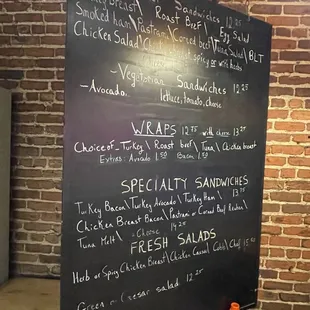 Sandwiches 12.25
Turkey Breast \ Roast Beef \ Egg Salad
Smoked ham \ Pastrami \ Corned beef \ Tuna Salad \ BLT
Chicken Salad \ spicy or with Herbs
-Vegetarian Sandwiches 12.25
-Avocado. lettuce, tomato, cheese
WRAPS 12.25 with cheese 13.25
Choice of - Turkey \ Roast beef \ Tuna \ Chicken breast
Extras: Avocado 1.50 Bacon 1.50
SPECIALTY SANDWICHES
Turkey Bacon \ Turkey Avocado \ Turkey Ham \ 13.75
Chicken Breast Bacon \ Pastrami or Corned Beef Reuben \
Tuna Melt \ + Cheese 14.25
FRESH SALADS
Herb or Spicy Chicken Breast \ Chicken Caesar \ Cobb \ Chef \ 15.50
Green or Caesar salad 12.25